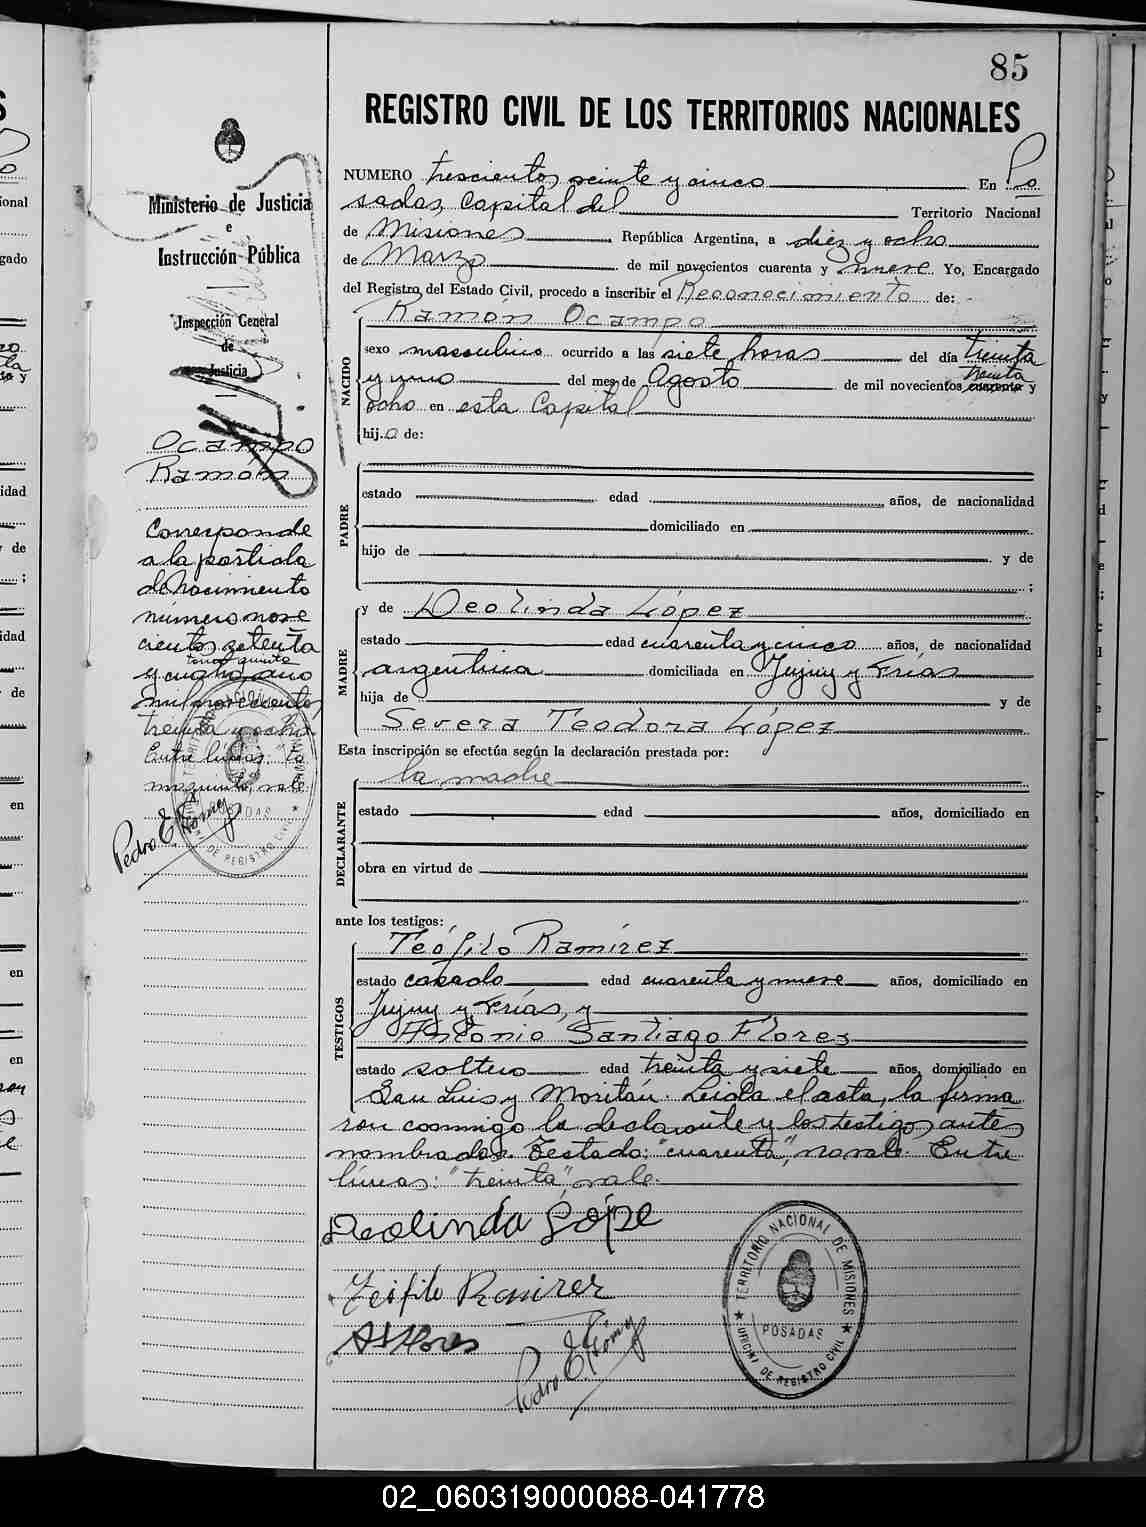 85
REGISTRO CIVIL DE LOS TERRITORIOS NACIONALES
NUMERO trescientos veinte y cinco En Po
sadas, Capital del Territorio Nacional
de Misiones República Argentina, a diez y ocho
de Marzo de mil novecientos cuarenta y nueve Yo, Encargado
del Registro del Estado Civil, procedo a inscribir el Reconocimiento de:
Ramón Ocampo
NACIDO
sexo masculino ocurrido a las siete horas del día treinta
y uno del mes de Agosto de mil novecientos cuarenta treinta y
ocho en esta Capital
hijo de:
PADRE
estado edad años, de nacionalidad
domiciliado en
hijo de y de
;
MADRE
y de Deolinda López
estado edad cuarenta y cinco años, de nacionalidad
argentina domiciliada en Jujuy y Frías
hija de y de
Severa Teodora López
Esta inscripción se efectúa según la declaración prestada por:
la madre
DECLARANTE
estado edad años, domiciliado en
obra en virtud de
ante los testigos:
TESTIGOS
Teófilo Ramírez
estado casado edad cuarenta y nueve años, domiciliado en
Jujuy y Frías, y
Antonio Santiago Flores
estado soltero edad treinta y siete años, domiciliado en
San Luis y Moritán. Leída el acta, la firma
ron conmigo la declarante y los testigos antes
nombrados. Testado: "cuarenta", no vale. Entre
líneas: "treinta", vale.
Deolinda Lópe
Teófilo Ramirez
ASFlores
Pedro E. Gómez
TERRITORIO NACIONAL DE MISIONES
POSADAS
OFICINA DE REGISTRO CIVIL
Ministerio de Justicia
e
Instrucción Pública
Inspección General
de
Justicia
Ocampo
Ramón
Corresponde
a la partida
de Nacimiento
número nove
cientos setenta
tomo quinto
y cuatro, año
mil novecientos
treinta y ocho
Entre líneas: to
mo quinto, vale.
Pedro E. Gómez
POSADAS
DE REGISTRO CIVIL
02_060319000088-041778